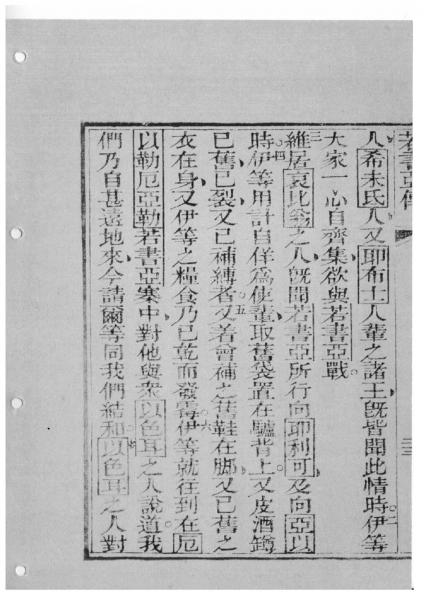 若書亞傳
人希未氏人又耶布士人輩之諸王既皆聞此情時二伊等
大家一心自齊集欲與若書亞戰
三維居哀比翁之人既聞若書亞所行向耶利可及向亞以
時四伊等用計自佯為使輩取舊袋置在驢背上又皮酒罇
已舊已裂又已補縛者五又著曾補之舊鞋在脚又已舊之
衣在身又伊等之糧食乃已乾而發霉六伊等就往到在厄
以勒厄亞勒若書亞寨中對他與眾以色耳之人說道我
們乃自甚遠地來今請爾等同我們結和七以色耳之人對